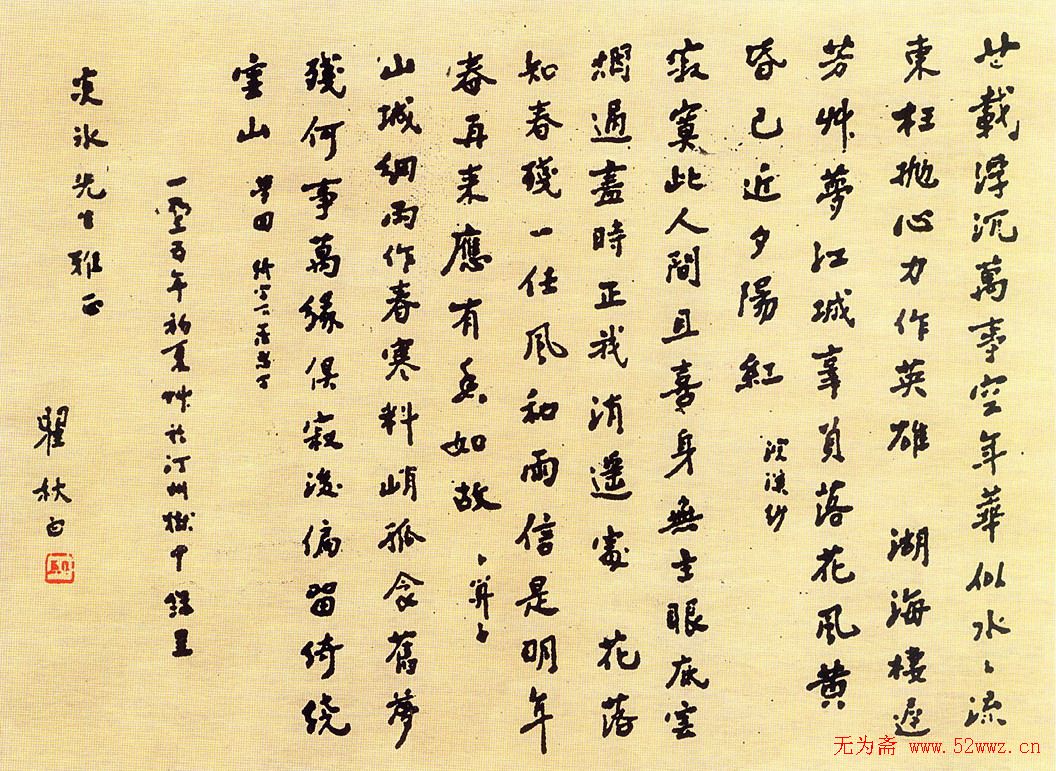 廿載浮沉萬事空年華似水〻流
東枉抛心力作英雄 湖海棲遲
芳艸夢江城辜負落花風黃
昏已近夕陽紅 浣溪紗
寂寞此人間且喜身無主眼底雲
烟過盡時正我逍遥處 花落
知春殘一任風和雨信是明年
春再來應有香如故 卜算子
山城細雨作春寒料峭孤衾舊夢
殘何事萬緣俱寂後偏留綺繞
雲山 夢回
五年初夏 於汀州獄中 錄呈
冰先生雅正
瞿秋白
无为斋 www.52wwz.cn